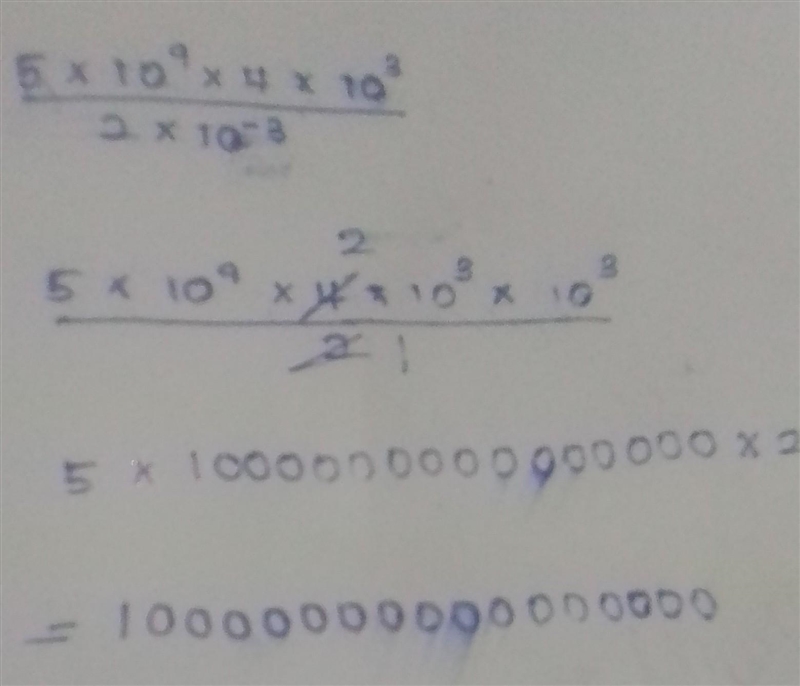 5 × 10⁹ × 4 × 10³
2 × 10⁻³
2
5 × 10⁹ × 4 × 10³ × 10³
2 1
5 × 1000000000000000 × 2
= 10000000000000000